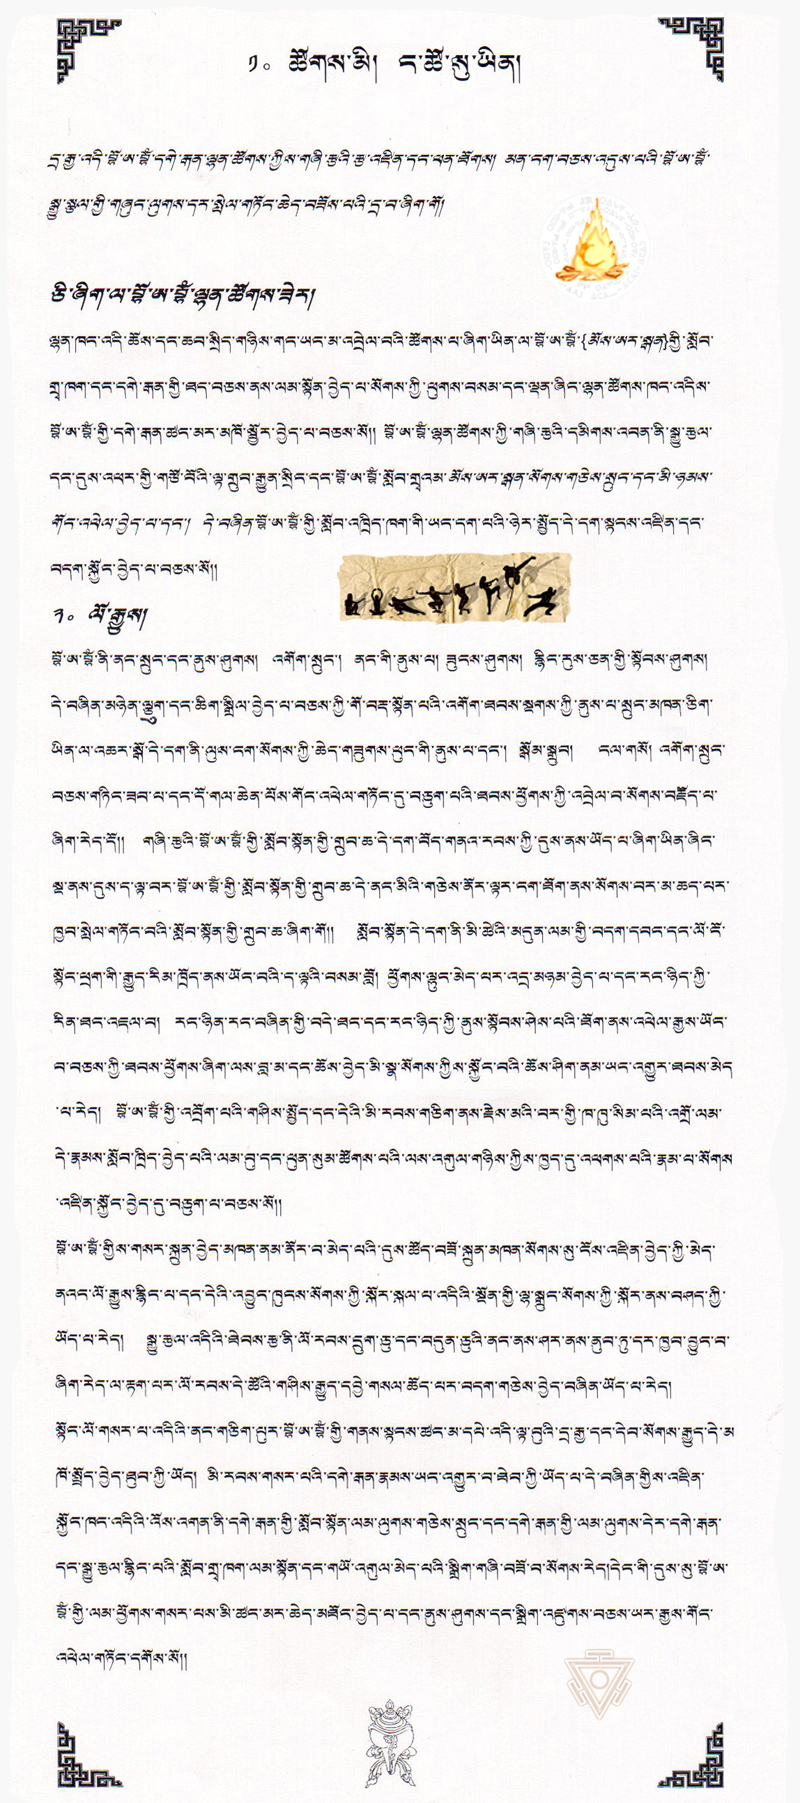 ༡༠ ཚོགས་མི། ང་ཚོ་སུ་ཡིན།
དྲ་རྒྱ་འདི་བྷོ་ཨ་བྷཾ་དགེ་རྒན་ལྷན་ཚོགས་ཀྱིས་གཞི་རྩའི་ཆ་འཛིན་དང་ཕན་ཐོགས། མན་ངག་བཅས་འདུས་པའི་བྷོ་ཨ་བྷཾ་
སྒྱུ་རྩལ་གྱི་གཞུང་ལུགས་དར་སྤེལ་གཏོང་ཆེད་བཟོས་པའི་དྲ་བ་ཞིག་གོ།
ཅི་ཞིག་ལ་བྷོ་ཨ་བྷཾ་ལྷན་ཚོགས་ཟེར།
ལྷན་ཁང་འདི་ཆོས་དང་ཆབ་སྲིད་གཉིས་གང་ཡང་མ་འབྲེལ་བའི་ཚོགས་པ་ཞིག་ཡིན་ལ་བྷོ་ཨ་བྷཾ་{མོས་ཨར་སྒྲན}གྱི་སློབ་
གྲྭ་ཁག་དང་དགེ་རྒན་གྱི་ཐད་བཅས་ནས་ལམ་སྟོན་བྱེད་པ་སོགས་ཀྱི་ཕུགས་བསམ་དང་ལྡན་ཞིང་ལྷན་ཚོགས་ཁང་འདིས་
བྷོ་ཨ་བྷཾ་གྱི་དགེ་རྒན་ཚང་མར་མཁོ་སྤྲོད་བྱེད་པ་བཅས་སོ།། བྷོ་ཨ་བྷཾ་ལྷན་ཚོགས་ཀྱི་གཞི་རྩའི་དམིགས་འབེན་ནི་སྒྱུ་རྩལ་
དང་དུས་འཕར་གྱི་གཙོ་བོའི་ལྟ་གྲུབ་རྒྱུན་སྲིང་དང་བྷོ་ཨ་བྷཾ་སློབ་གྲྭའམ་མོས་ཨར་སྒྲན་སོགས་གཅེས་སྲུང་དང་མི་ཉམས་
གོང་འཕེལ་བྱེད་པ་དང་། དེ་བཞིན་བྷོ་ཨ་བྷཾ་གྱི་སློབ་འཁྲིད་ཁག་གི་ཡང་དག་པའི་ཉེར་སྤྱོད་དེ་དག་སྟངས་འཛིན་དང་
བདག་སྐྱོང་བྱེད་པ་བཅས་སོ།།
༢༠ ལོ་རྒྱུས།
བྷོ་ཨ་བྷཾ་ནི་ནང་སྲུང་དང་ནུས་ཤུགས། འགོག་སྲུང་། ནང་གི་ནུས་པ། ཟུངས་ཤུགས། རྙིང་རུས་ཅན་གྱི་སྟོབས་ཤུགས།
དེ་བཞིན་མཉེན་ལྕུག་དང་ཆིག་སྒྲིལ་བྱེད་པ་བཅས་ཀྱི་གོ་བརྡ་སྟོན་པའི་འགོག་ཐབས་སྔགས་ཀྱི་ནུས་པ་སྲུང་མཁན་ཅིག་
ཡིན་ལ་འཆར་སྒོ་དེ་དག་ནི་ལུས་ངག་སོགས་ཀྱི་ཆེད་གཟུགས་ཕུང་གི་ནུས་པ་དང་། སྒོམ་སྒྲུབ། ངལ་གསོ། འགོག་སྲུང་
བཅས་གཏིང་ཟབ་པ་དང་དོ་གལ་ཆེན་པོས་གོང་འཕེལ་གཏོང་དུ་བཅུག་པའི་ཐབས་ཕྱོགས་ཀྱི་འབྲེལ་བ་སོགས་བརྗོད་པ་
ཞིག་རེད་དོ།། གཞི་རྩའི་བྷོ་ཨ་བྷཾ་གྱི་སློབ་སྟོན་གྱི་གྲུབ་ཆ་དེ་དག་བོད་གནའ་རབས་ཀྱི་དུས་ནས་ཡོད་པ་ཞིག་ཡིན་ཞིང་
སྔ་ནས་དུས་ད་ལྟ་བར་བྷོ་ཨ་བྷཾ་གྱི་སློབ་སྟོན་གྱི་གྲུབ་ཆ་དེ་ནང་མིའི་གཅེས་ནོར་ལྟར་ངག་ཐོག་ནས་སོགས་བར་མ་ཆད་པར་
ཁྱབ་སྤེལ་གཏོང་བའི་སློབ་སྟོན་གྱི་གྲུབ་ཆ་ཞིག་གོ།། སློབ་སྟོན་དེ་དག་ནི་མི་ཚེའི་མདུན་ལམ་གྱི་བདག་དབང་དང་ལོ་ངོ་
སྟོང་ཕྲག་གི་རྒྱུད་རིམ་ཁྲོད་ནས་ཡོང་བའི་ད་ལྟའི་བསམ་བློ། ཕྱོགས་ལྷུང་མེད་པར་འདྲ་མཉམ་བྱེད་པ་དང་རང་ཉིད་ཀྱི་
རིན་ཐང་འཇལ་བ། རང་ཉིན་རང་བཞིན་གྱི་བདེ་ཐང་དང་རང་ཉིད་ཀྱི་ནུས་སྟོབས་ཤེས་པའི་ཐོག་ནས་འཕེལ་རྒྱས་ཡོང་
བ་བཅས་ཀྱི་ཐབས་ཕྱོགས་ཞིག་ལས་བླ་མ་དང་ཆོས་བྱེད་མི་སྣ་སོགས་ཀྱིས་སྐྱོང་བའི་ཆོས་ཤིག་ནམ་ཡང་འགྱུར་ཐབས་མེད
་པ་རེད། བྷོ་ཨ་བྷཾ་གྱི་འབྲོག་པའི་གཤིས་སྤྱོད་དང་དེའི་མི་རབས་གཅིག་ནས་རྗེས་མའི་བར་གྱི་ཁ་ཁུ་སིམ་པའི་འགྲོ་ལམ་
དེ་རྣམས་སློབ་ཁྲིད་བྱེད་པའི་ལམ་བུ་དང་ཕུན་སུམ་ཚོགས་པའི་ལས་འགུལ་གཉིས་ཀྱིས་ཁྱད་དུ་འཕགས་པའི་རྣམ་པ་སོགས
་འཛིན་སྐྱོང་བྱེད་དུ་བཅུག་པ་བཅས་སོ།།
བྷོ་ཨ་བྷཾ་གྱིས་གསར་སྐྲུན་བྱེད་མཁན་ནམ་ནོར་བ་མེད་པའི་དུས་ཚོད་བཟོ་སྐྲུན་མཁན་སོགས་སུ་ངོས་འཛིན་བྱེད་ཀྱི་མེད་
ནའང་ལོ་རྒྱུས་རྙིང་པ་དང་དེའི་འབྱུང་ཁུངས་སོགས་ཀྱི་སྐོར་སྐལ་པ་འདིའི་སྔོན་གྱི་ལྷ་སྒྲུང་སོགས་ཀྱི་སྐོར་ནས་བཤད་ཀྱི་
ཡོད་པ་རེད། སྒྱུ་རྩལ་འདིའི་ཐེབས་རྩ་ནི་ལོ་རབས་དྲུག་ཅུ་དང་བདུན་ཅུའི་ནང་ནས་ཤར་ནས་ནུབ་ཏུ་དར་ཁྱབ་བྱུང་བ་
ཞིག་རེད་ལ་རྟག་པར་ལོ་རབས་དེ་ཚོའི་གཤིས་རྒྱུད་དབྱེ་གསལ་ཚོད་པར་བདག་གཅེས་བྱེད་བཞིན་ཡོད་པ་རེད།
སྟོང་ལོ་གསར་པ་འདིའི་ནང་གཅིག་པུར་བྷོ་ཨ་བྷཾ་གྱི་གནས་སྟངས་ཚང་མ་དཔེ་འདི་ལྟ་བུའི་དྲ་རྒྱ་དང་དེབ་སོགས་རྒྱུད་དེ་མ
ཁོ་སྤྲོད་བྱེད་ཐུབ་ཀྱི་ཡོད། མི་རབས་གསར་པའི་དགེ་རྒན་རྣམས་ཡང་འགྱུར་བ་ཐེབ་ཀྱི་ཡོད་པ་དེ་བཞིན་གྱིས་འཛིན་
སྐྱོང་ཁང་འདིའི་འོས་འགན་ནི་དགེ་རྒན་གྱི་སློབ་སྟོན་ལམ་ལུགས་གཅེས་སྲུང་དང་དགེ་རྒན་གྱི་ལམ་ལུགས་དེར་དགེ་རྒན་
དང་སྒྱུ་རྩལ་རྙིང་པའི་སློབ་གྲྭ་ཁག་ལམ་སྟོན་དང་གཡོ་འགུལ་མེད་པའི་སྒྲིག་གཞི་བཟོ་བ་སོགས་རེད།དེང་གི་དུས་སུ་བྷོ་ཨ་
བྷཾ་གྱི་ལམ་ཕྱོགས་གསར་པས་མི་ཚང་མར་ཆེད་མཐོང་བྱེད་པ་དང་ནུས་ཤུགས་དང་སྒྲིག་འཛུགས་བཅས་ཡར་རྒྱས་གོང་
འཕེལ་གཏོང་དགོས་སོ།།